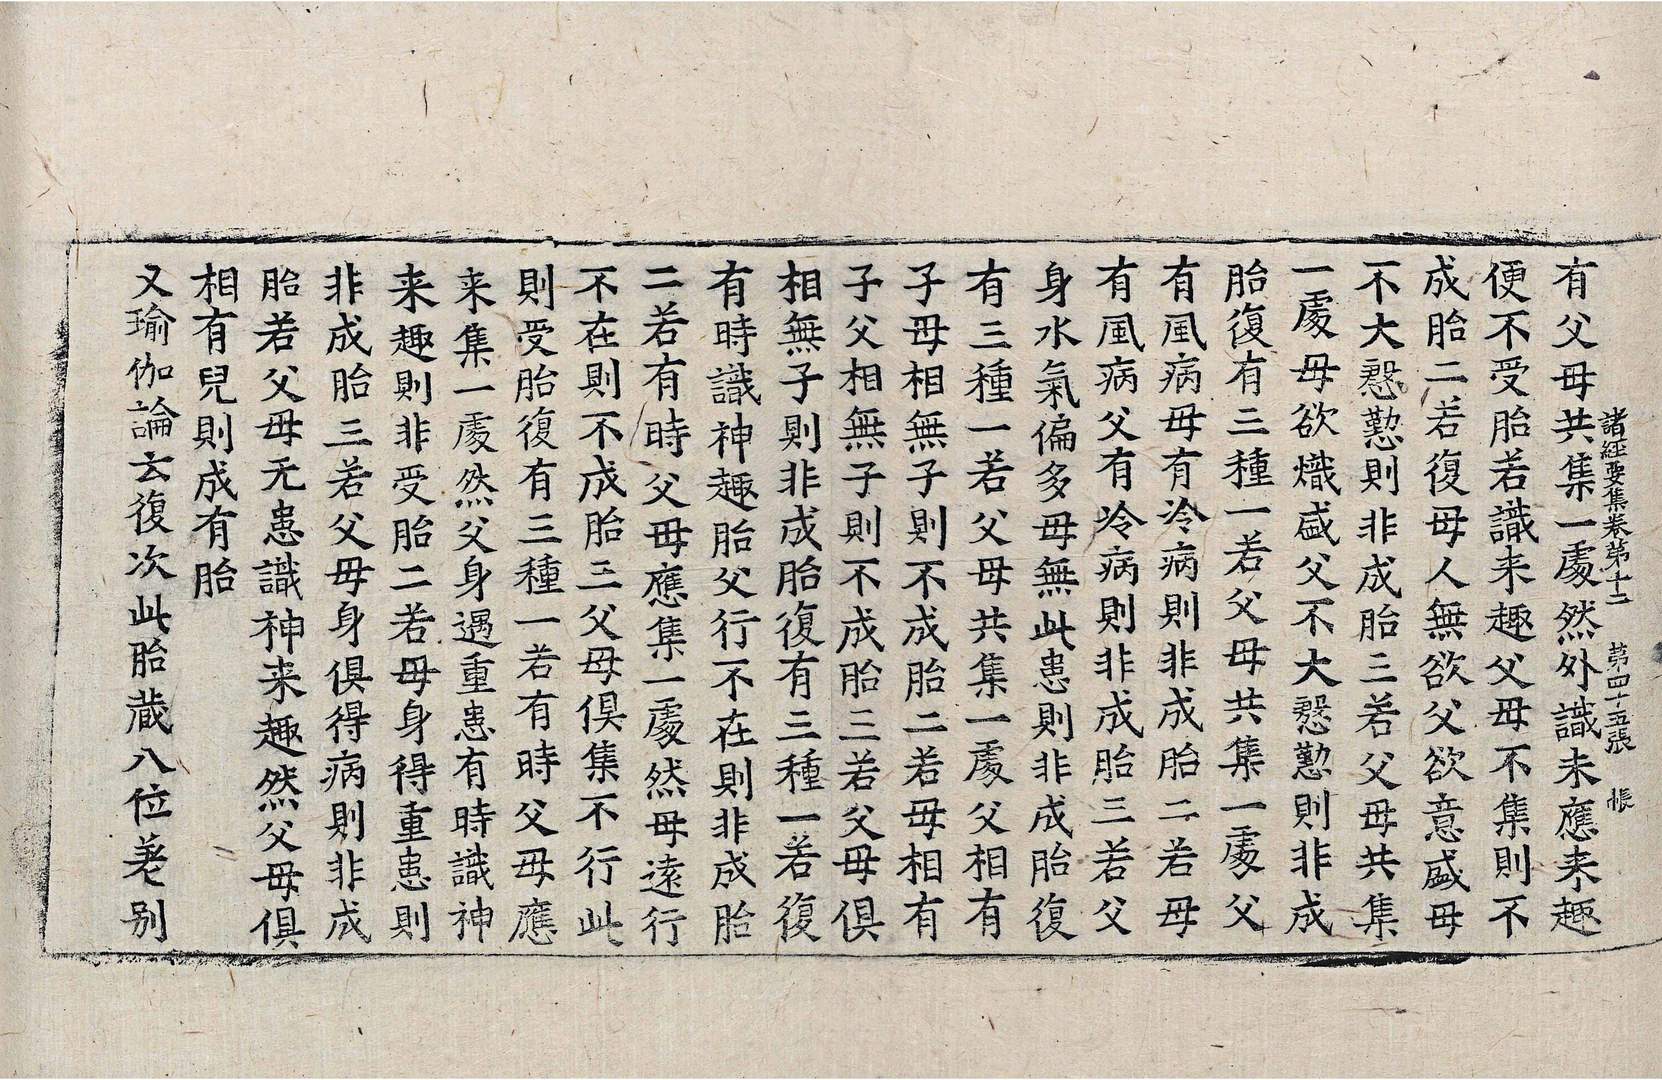 諸經要集卷第十二　第四十五張　帳
有父母共集一處然外識未應来趣
便不受胎若識来趣父母不集則不
成胎二若復母人無欲父欲意盛母
不大慇懃則非成胎三若父母共集
一處母欲熾盛父不大慇懃則非成
胎復有三種一若父母共集一處父
有風病母有冷病則非成胎二若母
有風病父有冷病則非成胎三若父
身水氣偏多母無此患則非成胎復
有三種一若父母共集一處父相有
子母相無子則不成胎二若母相有
子父相無子則不成胎三若父母俱
相無子則非成胎復有三種一若復
有時識神趣胎父行不在則非成胎
二若有時父母應集一處然母遠行
不在則不成胎三父母俱集不行此
則受胎復有三種一若有時父母應
来集一處然父身遇重患有時識神
来趣則非受胎二若母身得重患則
非成胎三若父母身俱得病則非成
胎若父母无患識神来趣然父母俱
相有兒則成有胎
又瑜伽論云復次此胎藏八位差别